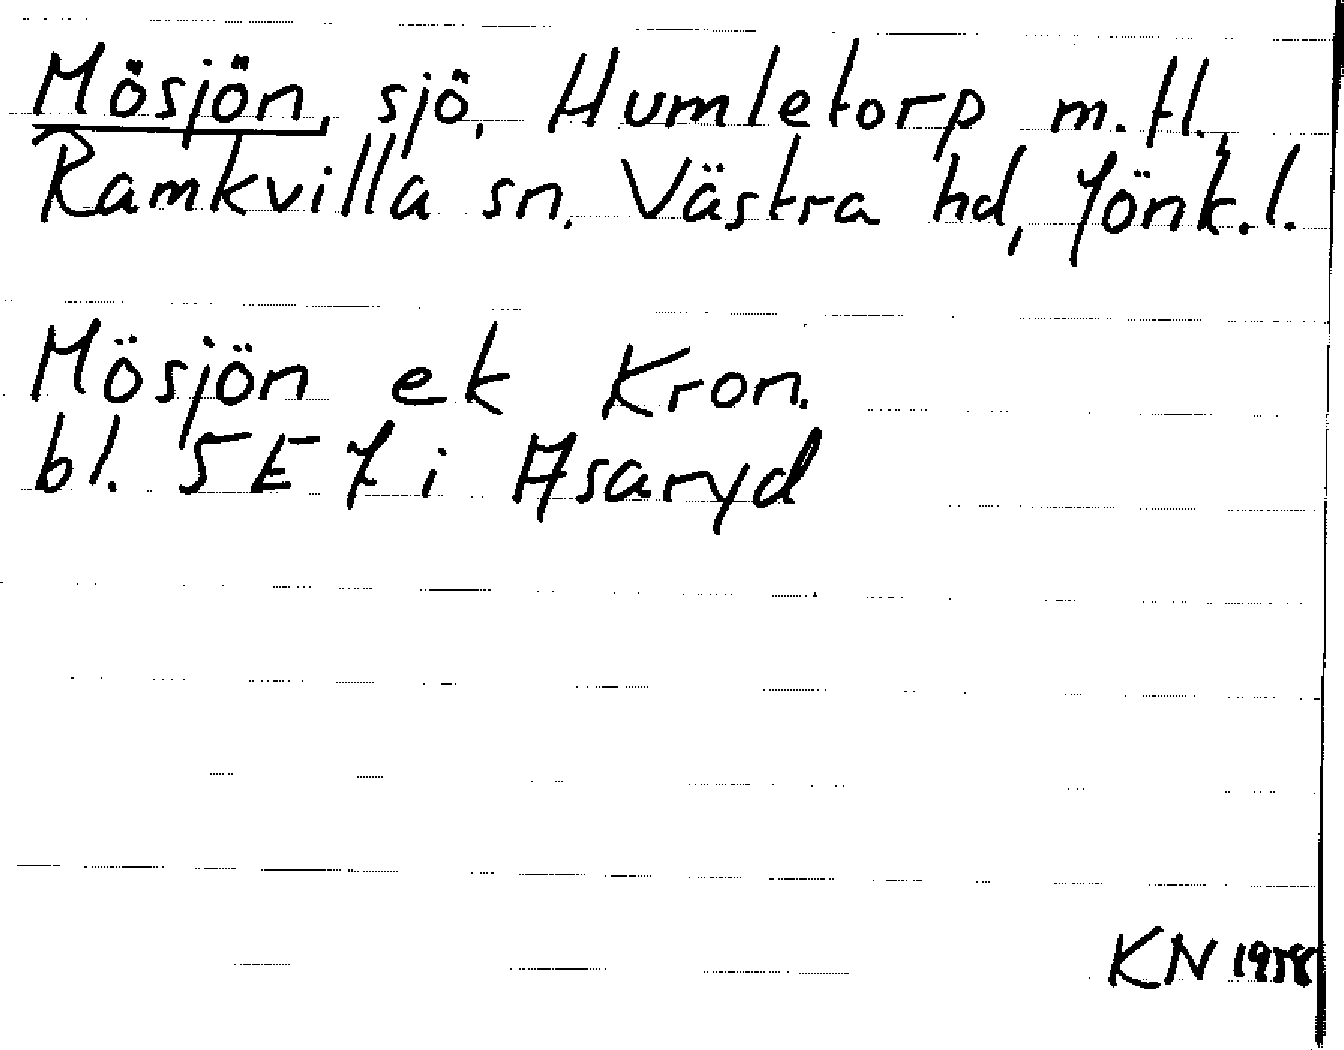 Mösjön, sjö, Humletorp m.fl.,
Ramkvilla sn, Västra hd, Jönk.l.
Mösjön ek Kron.
bl. 5E 7 i Asaryd
KN 1958